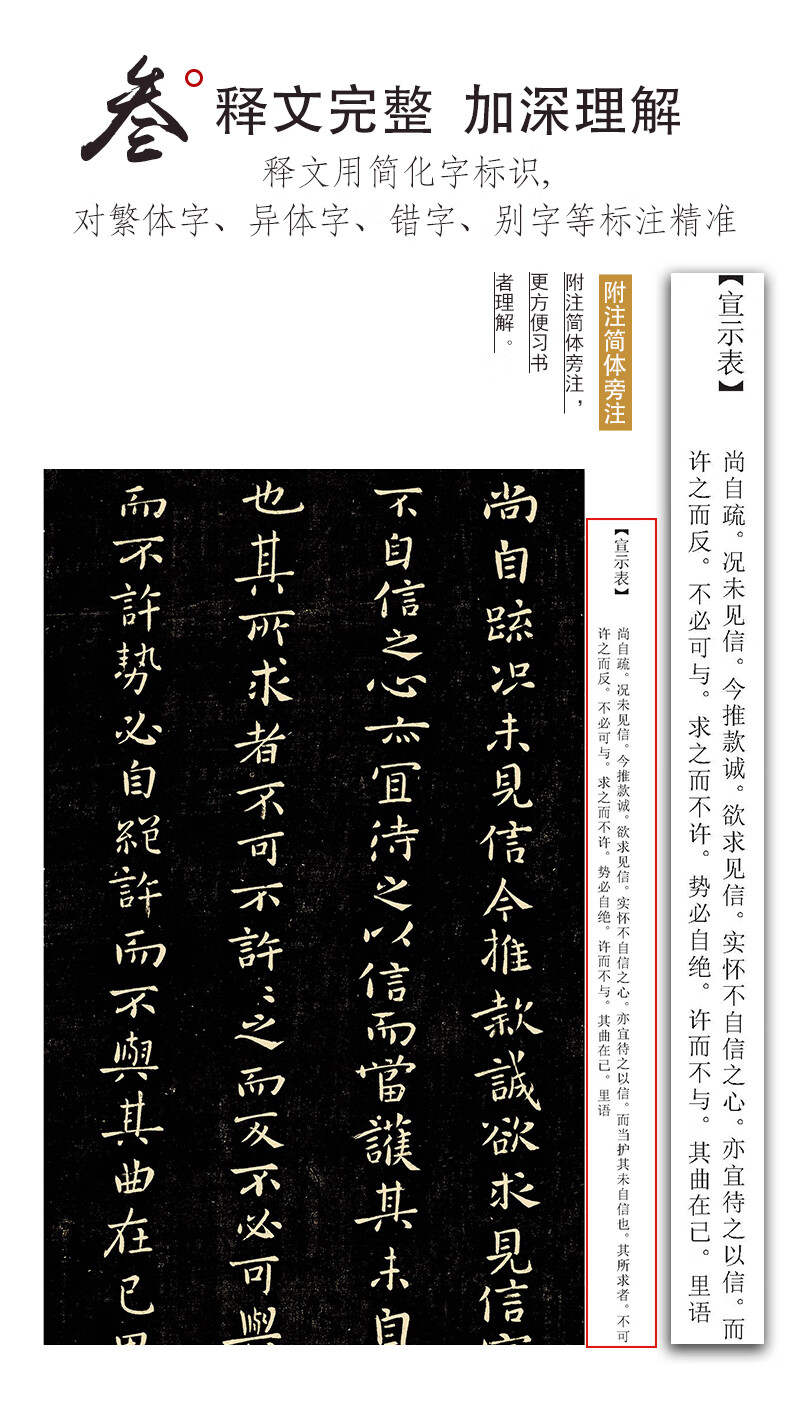 叁
释文完整 加深理解
释文用简化字标识,
对繁体字、异体字、错字、别字等标注精准
附注简体旁注
附注简体旁注，
更方便习书
者理解。
【宣示表】
尚自疏。况未见信。今推款诚。欲求见信。实怀不自信之心。亦宜待之以信。而
许之而反。不必可与。求之而不许。势必自绝。许而不与。其曲在己。里语
【宣示表】
尚自疏。况未见信。今推款诚。欲求见信。实怀不自信之心。亦宜待之以信。而当护其未自信也。其所求者。不可
许之而反。不必可与。求之而不许。势必自绝。许而不与。其曲在己。里语
尚自疏况未見信今推款誠欲求見信
不自信之心亦宜待之以信而當護其未自
也其所求者不可不許〻之而反不必可與
而不許勢必自絕許而不與其曲在己